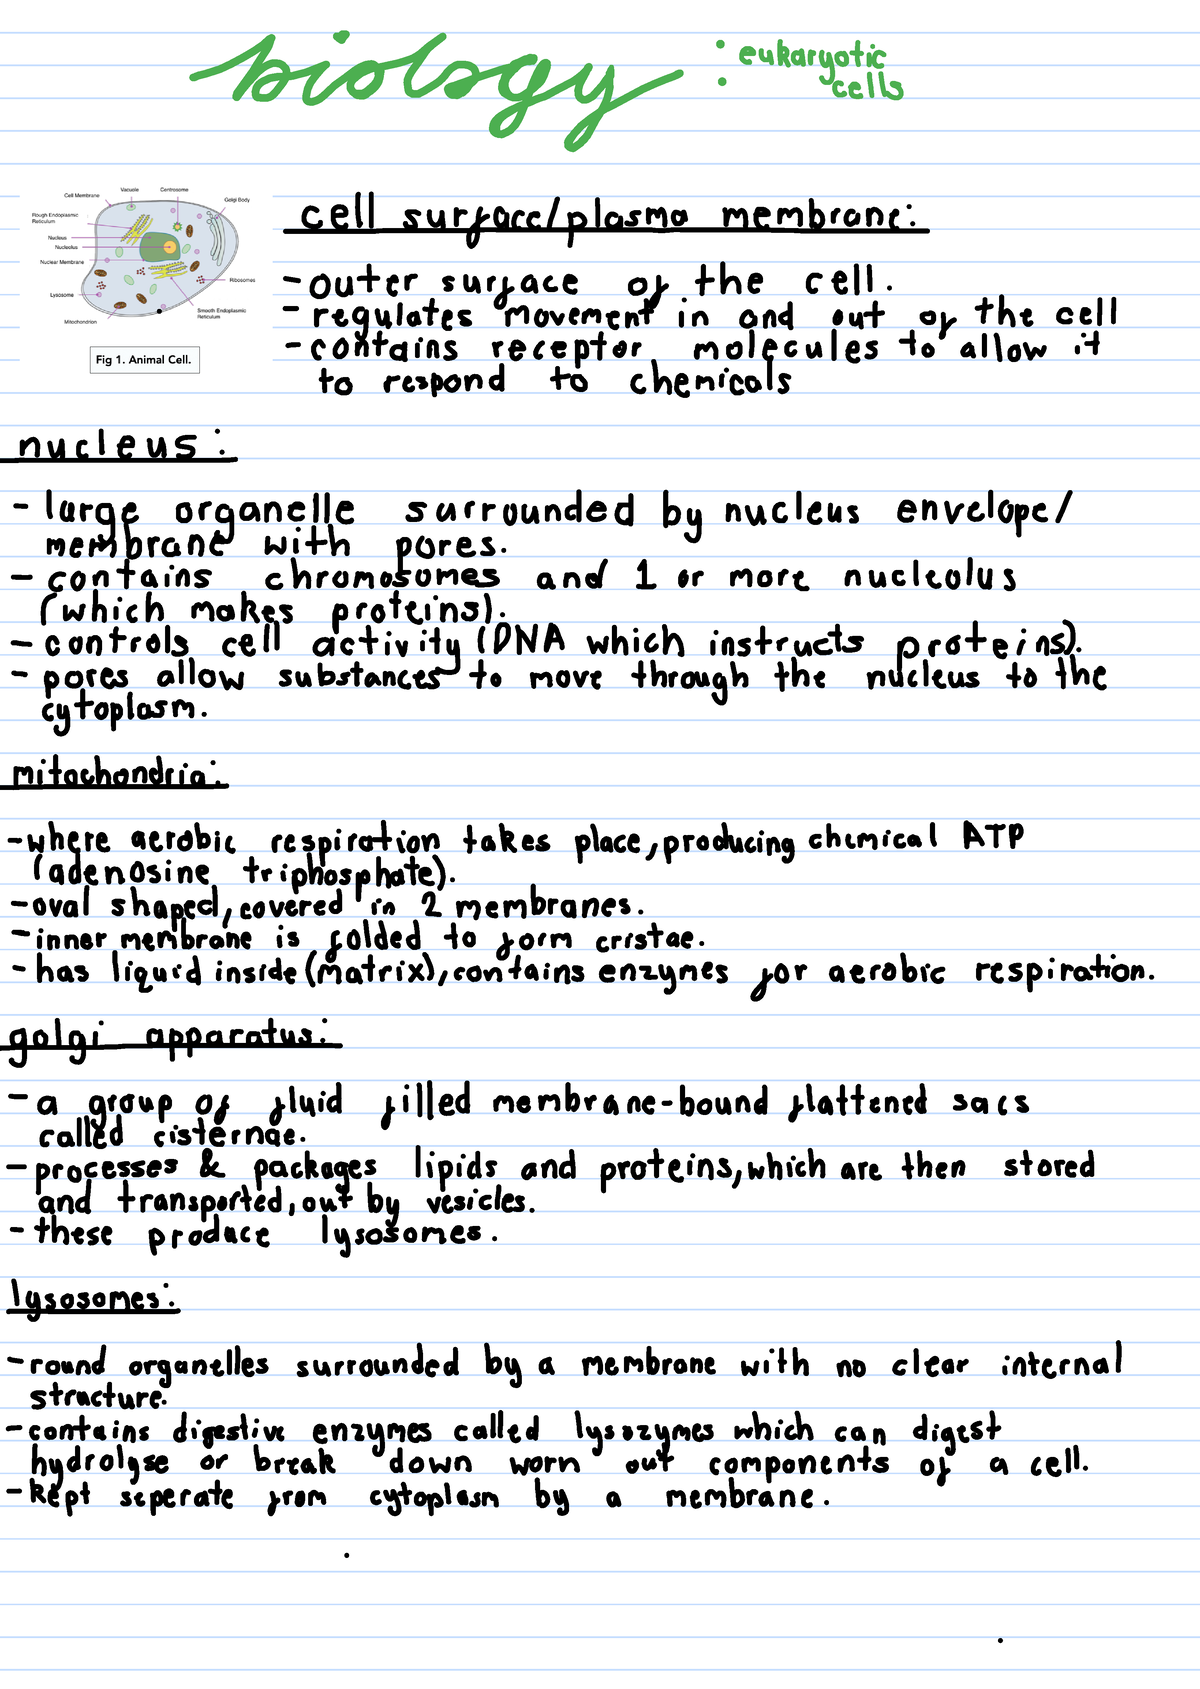 biology : eukaryotic
cells
Cell Membrane
Vacuole
Centrosome
Golgi Body
Rough Endoplasmic
Reticulum
Nucleus
Nucleolus
Nuclear Membrane
Lysosome
Mitochondrion
Ribosomes
Smooth Endoplasmic
Reticulum
Fig 1. Animal Cell.
cell surface/plasma membrane:
- outer surface of the cell.
- regulates movement in and out of the cell
- contains receptor molecules to allow it
to respond to chemicals
nucleus:
- large organelle surrounded by nucleus envelope/
membrane with pores.
- contains chromosomes and 1 or more nucleolus
(which makes proteins).
- controls cell activity (DNA which instructs proteins).
- pores allow substances to move through the nucleus to the
cytoplasm.
mitochondria:
- where aerobic respiration takes place, producing chemical ATP
(adenosine triphosphate).
- oval shaped, covered in 2 membranes.
- inner membrane is folded to form cristae.
- has liquid inside (matrix), contains enzymes for aerobic respiration.
golgi apparatus:
- a group of fluid filled membrane-bound flattened sacs
called cisternae.
- processes & packages lipids and proteins, which are then stored
and transported, out by vesicles.
- these produce lysosomes.
lysosomes:
- round organelles surrounded by a membrane with no clear internal
structure.
- contains digestive enzymes called lysozymes which can digest
hydrolyse or break down worn out components of a cell.
- kept seperate from cytoplasm by a membrane.